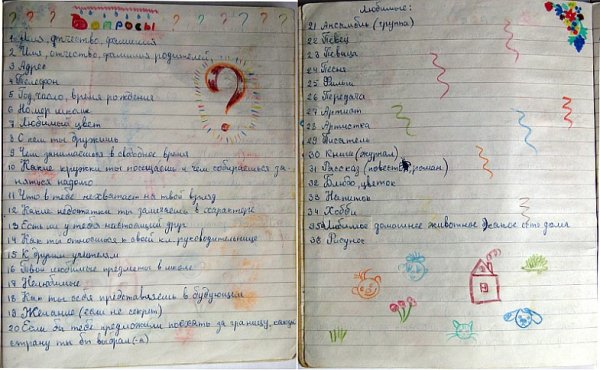 Вопросы
1 Имя, отчество, фамилия
2 Имя, отчество, фамилия родителей
3 Адрес
4 Телефон
5 Год, число, время рождения
6 Номер школы
7 Любимый цвет
8 С кем ты дружишь
9 Чем занимаешся в свободное время
10 Какие кружки ты посещаеш и чем собираешься за-
няться надолго
11 Что в тебе нехватает на твой взгляд
12 Какие недостатки ты замечаеш в характере
13 Есть ли у тебя настоящий друг
14 Как ты относишься к своей кл. руководительнице
15 К другим учителям
16 Твои любимые предметы в школе
17 Нелюбимые
18 Как ты себя представляешь в будующем
19 Желание (если не секрет)
20 Если бы тебе предложили поехать за границу, какую
страну ты бы выбрал(-а)
Любимое:
21 Ансамбль (группа)
22 Певец
23 Певица
24 Песня
25 Фильм
26 Передача
27 Артист
28 Артистка
29 Писатель
30 Книга (журнал)
31 Рассказ (повесть, роман)
32 Блюдо, цветок
33 Напиток
34 Хобби
35 Любимое домашнее животное
36 Рисунок